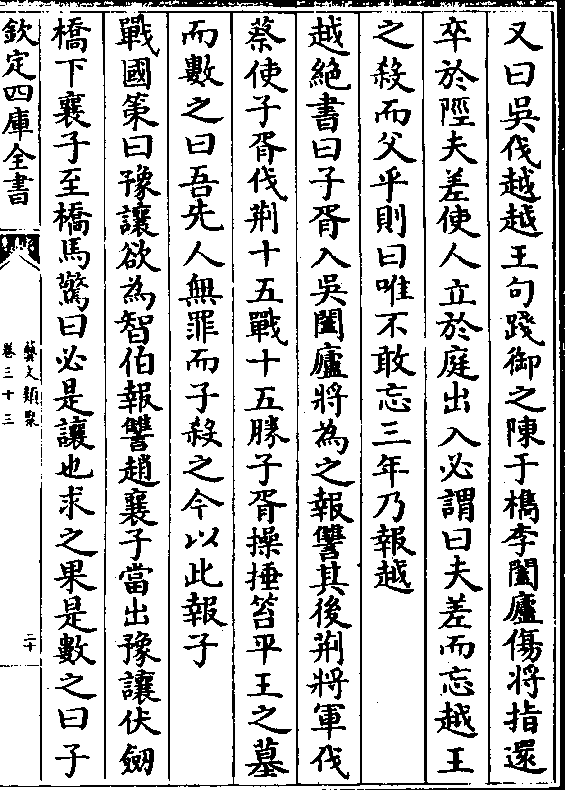 又曰吳伐越越王句踐御之陳于檇李闔廬傷將指還
卒於陘夫差使人立於庭出入必謂曰夫差而忘越王
之殺而父乎則曰唯不敢忘三年乃報越
越絶書曰子胥入吳闔廬將為之報讐其後荆將軍伐
蔡使子胥伐荆十五戰十五勝子胥操捶笞平王之墓
而數之曰吾先人無罪而子殺之今以此報子
戰國策曰豫讓欲為智伯報讐趙襄子當出豫讓伏劒
橋下襄子至橋馬驚曰必是讓也求之果是數之曰子
欽定四庫全書
藝文類聚
卷三十三
二十